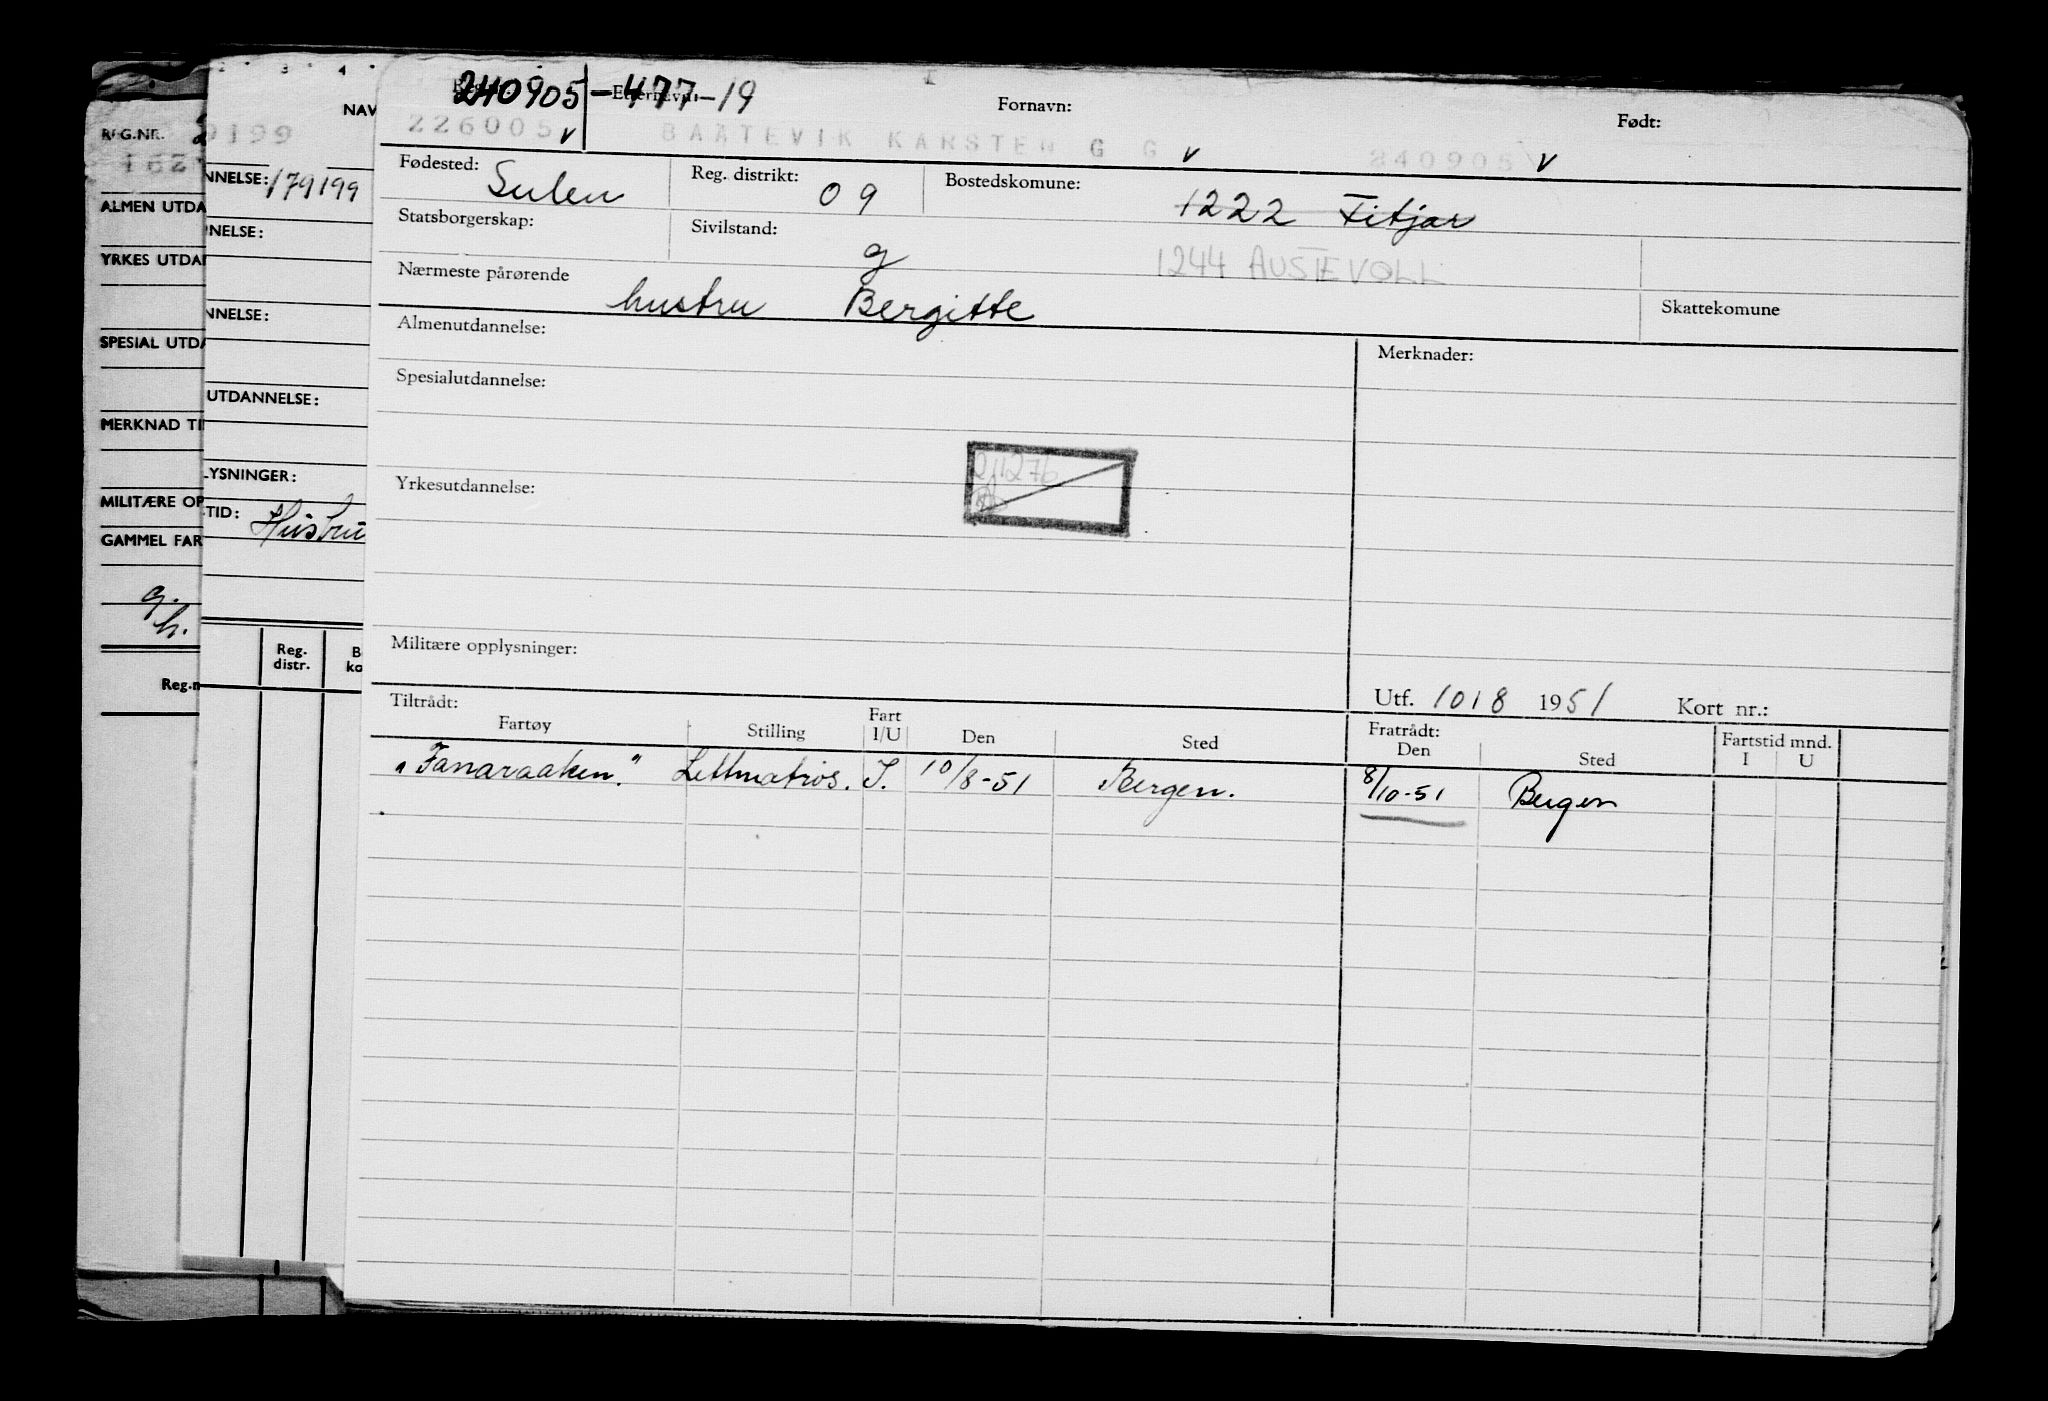 2 3 4
NAV
REG.NR. 9199
162
NNELSE: 179199
ALMEN UTDA
RNELSE:
YRKES UTDA
NNELSE:
SPESIAL UTDA
UTDANNELSE:
MERKNAD TI
LYSNINGER:
MILITÆRE OP
TID: Hustru
GAMMEL FAR
g.
h.
Reg. distr. B ko
Reg.n
240905-477-19
Etternavn: Fornavn: Født:
226005 v BAATEVIK KARSTEN G G v 240905 v
Fødested: Sulen Reg. distrikt: 09 Bostedskomune: 1222 Fitjar
Statsborgerskap: Sivilstand: g 1244 AUSTEVOLL
Nærmeste pårørende hustru Bergitte Skattekomune
Almenutdannelse: Merknader:
Spesialutdannelse:
211276
Yrkesutdannelse:
Militære opplysninger:
Utf. 10 / 8 1951 Kort nr.:
Tiltrådt: Fratrådt:
Fartøy Stilling Fart I/U Den Sted Den Sted Fartstid mnd. I U
"Fanaraaken." Lettmatros. I. 10/8-51 Bergen. 8/10-51 Bergen